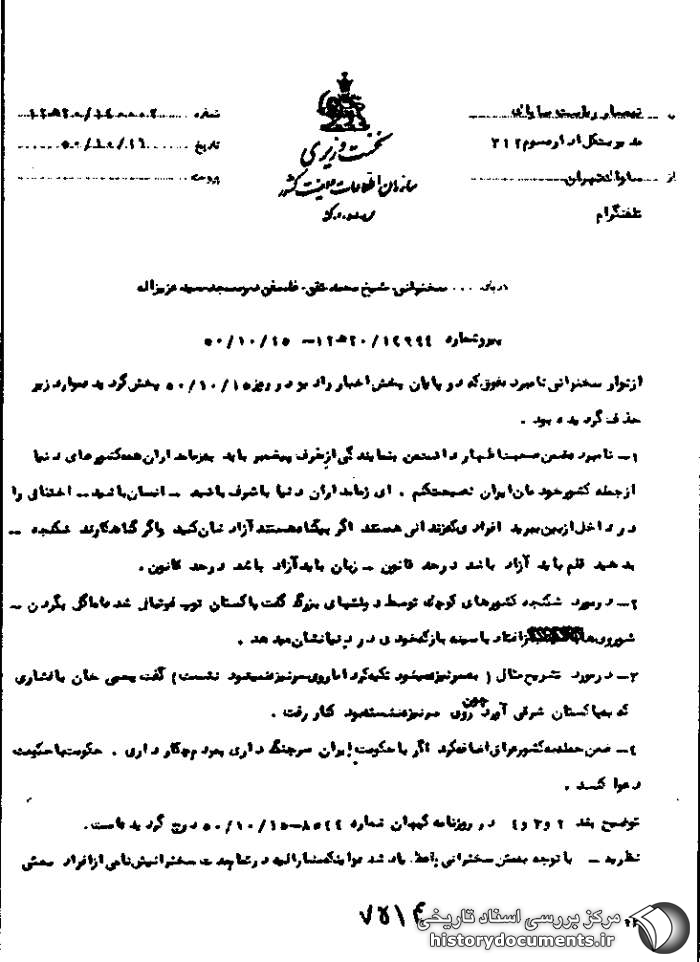 به تیمسار ریاست ساواک
مدیریت کل اداره سوم ۳۱۲
از ساواک تهران
تلفنگرام
نخست وزیری
سازمان اطلاعات و امنیت کشور
س.ا.و.ا.ک
شماره ۲۰/۱۴۰۰۰۲ ه ۱۲
تاریخ ۵۰/۱۰/۱۶
پیوست
درباره سخنرانی شیخ محمد تقی فلسفی در مسجد سید عزیزاله
پیرو شماره ۲۰/۱۳۹۹۴ ه ۱۲ – ۵۰/۱۰/۱۵
از نوار سخنرانی نامبرده فوق که در پایان پخش اخبار رادیو در روز ۵۰/۱۰/۱۵ پخش گردید موارد زیر
حذف گردیده بود .
۱ – نامبرده ضمن صحبت اظهار داشت من بنمایندگی از طرف پیغمبر باید بزمامداران همه کشورهای دنیا
از جمله کشور خودمان ایران نصیحت کنم . ای زمامداران دنیا باشرف باشید – انسان باشید – اختناق را
در داخل از بین ببرید افرادی که زندانی هستند اگر بیگناه هستند آزادشان کنید واگر گناهکارند شکنجه –
ندهید قلم باید آزاد باشد در حد قانون – زبان باید آزاد باشد در حد قانون .
۲ – در مورد شکنجه کشورهای کوچک توسط دولتهای بزرگ گفت پاکستان توپ فوتبالی شد ماماگل بگردن –
شورویها افتاد با سینه باز که خودی در دنیا نشان میدهد .
۳ – در مورد تشریح مثال ( به سر نیزه میشود تکیه کرد اما روی سر نیزه نمیشود نشست ) گفت یحیی خان با فشاری
که به پاکستان شرقی آورد چون روی سر نیزه نشسته بود کنار رفت .
۴ – ضمن حمله به کشور عراق اضافه کرد اگر با حکومت ایران سر جنگ داری بمردم چکار داری . حکومت با حکومت
دعوا کند .
توضیح بند ۲ و ۳ و ۴ در روزنامه کیهان شماره ۸۵۴۴–۵۰/۱۰/۱۵ درج گردیده است .
نظریه – با توجه بمتن سخنرانی یاد شده و اینکه مشارالیه در تمام مدت سخنرانیش نامی از افراد معنی
۷۵۱۴
مرکز بررسی اسناد تاریخی
historydocuments.ir